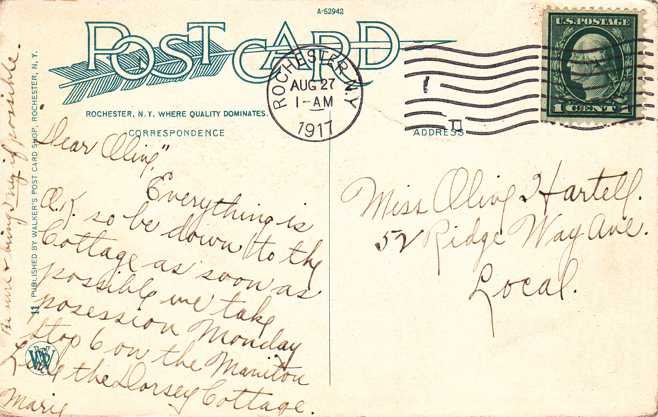 A-52942
POST CARD
ROCHESTER, N. Y. WHERE QUALITY DOMINATES.
CORRESPONDENCE
ADDRESS
ROCHESTER, N.Y.
AUG 27
1-AM
1917
U.S. POSTAGE
1 CENT 1
11 PUBLISHED BY WALKER'S POST CARD SHOP, ROCHESTER, N. Y.
"Dear Oling,"
Everything is
O.K. so be down to the
Cottage as soon as
possible we take
posession Monday
Stop 6 on the Manitou
Line the Dorsey Cottage.
Marie
if possible.
Miss Oling Hartell.
52 Ridge Way Ave.
Local.